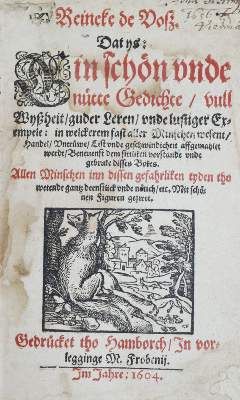 Reineke de Voß.
Dat ys:
Ein schön vnde
nütte Gedichte / vull
Wyßheit / guder Leren / vnde lustiger Ex-
empele: in welckerem fast aller Minschen wesent /
Handel / Vntruwe / List vnde geschwindicheit affgemahlet
werdt / Beneuenst dem sittliken vorstande vnde
gebruke disses Bokes.
Allen Minschen inn dissen gefahrliken tyden tho
wetende gantz deenstlick vnde nötich / etc. Mit schö-
nen Figuren geziret.
Gedrücket tho Hamborch / In vor-
legginge M. Frobenij.
Im Jahre: 1604.